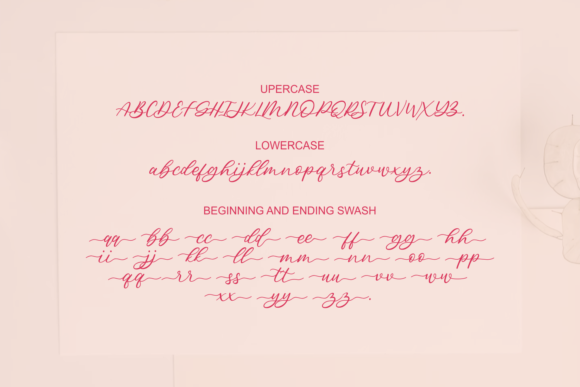 UPERCASE
ABCDEFGHIJKLMNOPQRSTUVWXYZ.
LOWERCASE
abcdefghijklmnopqrstuvwxyz.
BEGINNING AND ENDING SWASH
aa bb cc dd ee ff gg hh
ii jj kk ll mm nn oo pp
qq rr ss tt uu vv ww
xx yy zz.